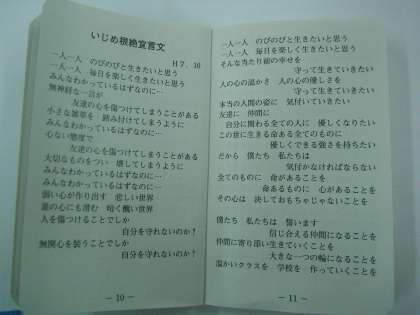 いじめ根絶宣言文
H7、10
一人一人 のびのびと生きたいと思う
一人一人 毎日を楽しく生きたいと思う
みんなわかっているはずなのに…
無神経な一言が
友達の心を傷つけてしまうことがある
小さな雑草を 踏み付けてしまうように
みんなわかっているはずなのに…
心ない態度で
友達の心を傷つけてしまうことがある
大切なものをつい 壊してしまうように
みんなわかっているはずなのに…
みんなわかっているはずなのに…
弱い心が作り出す 悲しい世界
誰の心にも潜む 暗く醜い世界
人を傷つけることでしか
自分を守れないのか?
無関心を装うことでしか
自分を守れないのか?
－10－
一人一人 のびのびと生きたいと思う
一人一人 毎日を楽しく生きたいと思う
そんな当たり前の幸せを
守って生きていきたい
人の心の温かさ 人の心の優しさを
守って生きていきたい
本当の人間の姿に 気付いていきたい
友達に 仲間に
自分に関わる全ての人に 優しくなりたい
この世に生きる命ある全てのものに
優しくできる強さを持ちたい
だから 僕たち 私たちは
気付かなければならない
全てのものに 命があることを
命あるものに 心があることを
その心は 決しておもちゃじゃないことを
僕たち 私たちは 誓います
信じ合える仲間になることを
仲間に寄り添い生きていくことを
大きな一つの輪になることを
温かいクラスを 学校を 作っていくことを
－11－